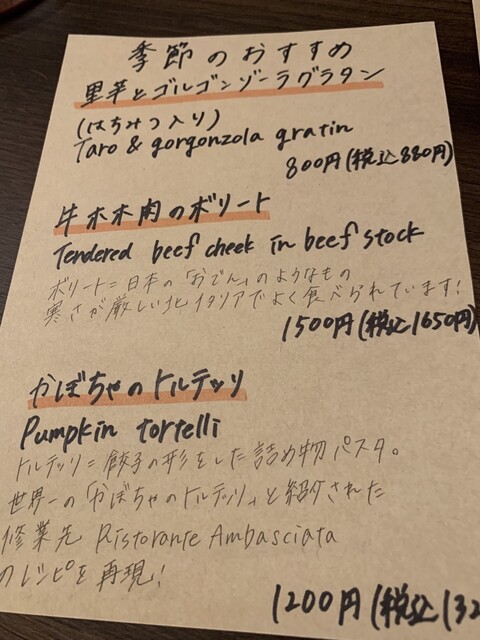 季節のおすすめ
里芋とゴルゴンゾーラグラタン
(はちみつ入り)
Taro & gorgonzola gratin
800円(税込880円)
牛ホホ肉のボリート
Tendered beef cheek in beef stock
ボリート=日本の「おでん」のようなもの
寒さが厳しい北イタリアでよく食べられています!
1500円(税込1650円)
かぼちゃのトルテッリ
Pumpkin tortelli
トルテッリ=餃子の形をした詰め物パスタ。
世界一の「かぼちゃのトルテッリ」と紹介された
修業先 Ristorante Ambasciata
のレシピを再現!
1200円(税込132